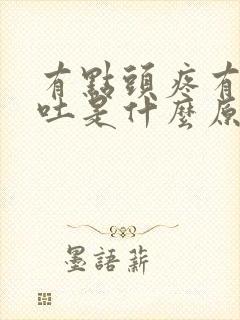 有點頭疼有
吐是什麼原
墨語薪